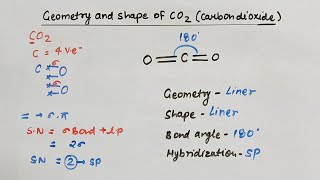 Geometry and shape of CO₂ (carbondioxide)
CO₂
C = 4 ve⁻
180°
O = C = O
C O
O
⇒ → σ, π
S.N = σ Bond + l.p
= 2σ
S.N = 2 → SP
Geometry - Liner
Shape - Liner
Bond angle - 180°
Hybridization - SP